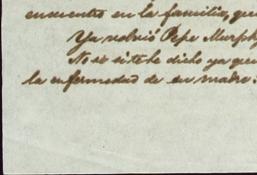 encuentro en la familia, que
Ya volvió Pepe Murphy
No se si te he dicho ya que
la enfermedad de su madre.